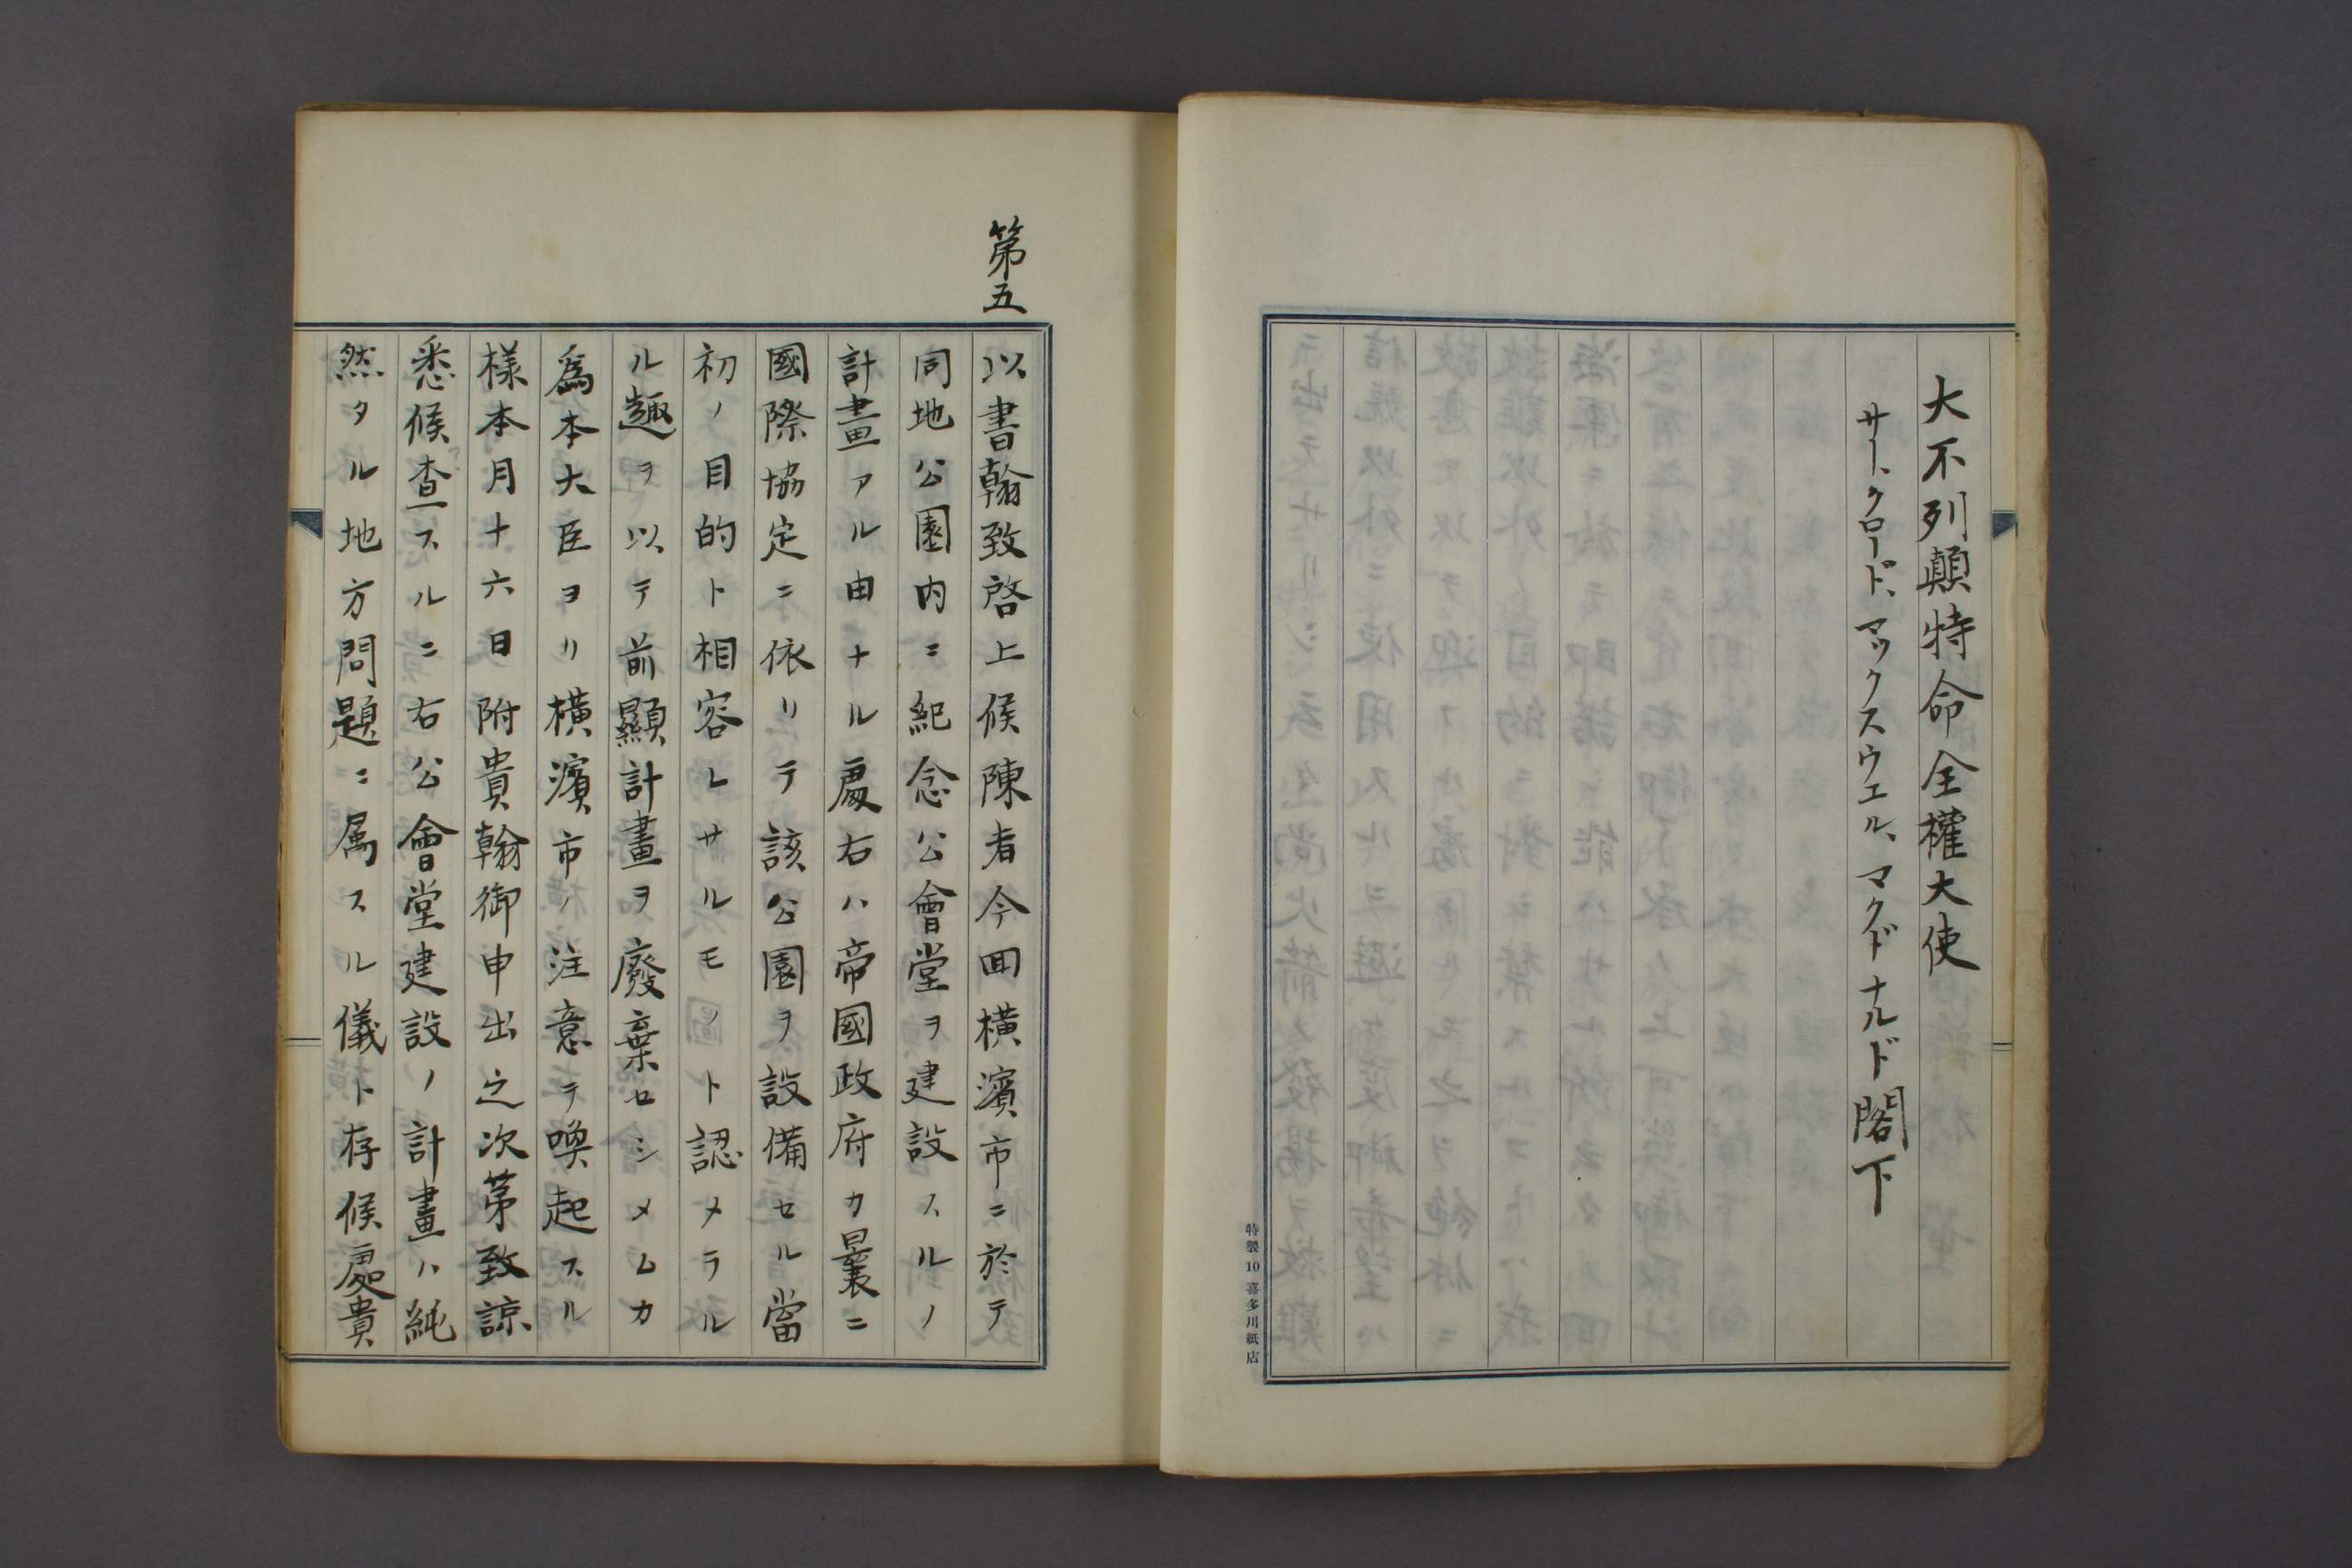 大不列顛特命全權大使
サー、クロード、マックスウエル、マクドナルド閣下
特製10 喜多川紙店
第五
以書翰致啓上候陳者今囬横濱市ニ於テ
同地公園内ニ紀念公會堂ヲ建設スルノ
計畫アル由ナル處右ハ帝國政府カ曩ニ
國際協定ニ依リテ該公園ヲ設備セル當
初ノ目的ト相容レサルモノト認メラル
ル趣ヲ以テ前顯計畫ヲ廢棄セシメムカ
爲本大臣ヨリ横濱市ノ注意ヲ喚起スル
樣本月十六日附貴翰御申出之次第致諒
悉候査スルニ右公會堂建設ノ計畫ハ純
然タル地方問題ニ属スル儀ト存候處貴